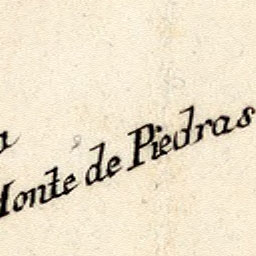 a
Monte de Piedras